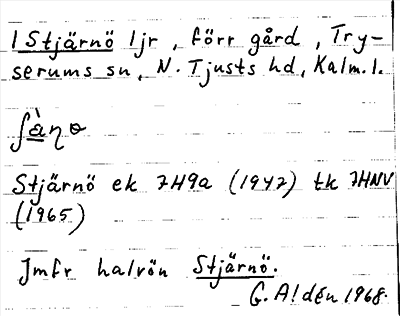 1 Stjärnö ljr, förr gård, Try-
serums sn, N. Tjusts hd, Kalm. l.
ʃà̱ɳɵ
Stjärnö ek 7H9a (1947) tk 7HNV
(1965)
Jmfr halvön Stjärnö.
G. Aldén 1968.